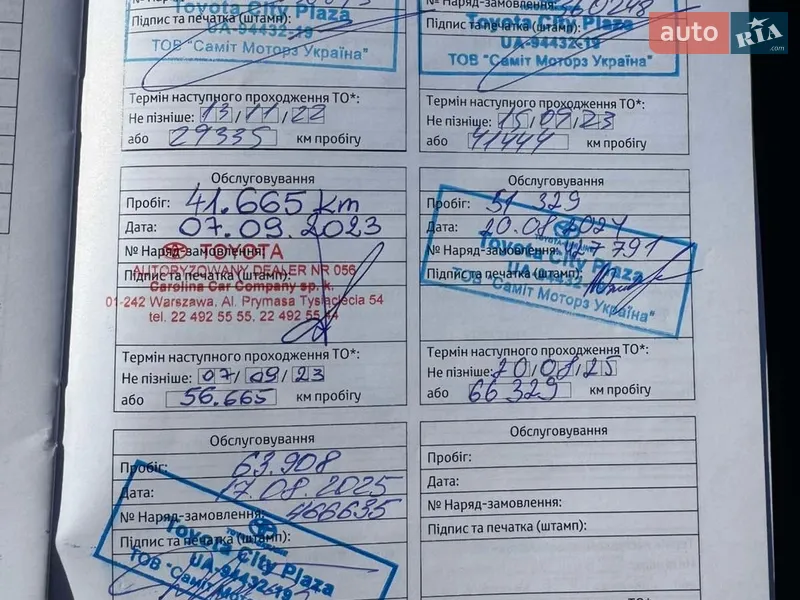 Toyota City Plaza
Підпис та печатка (штамп):
UA-94432-19
ТОВ "Саміт Моторз Україна"
Термін наступного проходження ТО*:
Не пізніше: 13/11/22
або 29335 км пробігу
Наряд-замовлення:
Toyota City Plaza
Підпис та печатка (штамп):
UA-94432-19
ТОВ "Саміт Моторз Україна"
auto RIA.com
Термін наступного проходження ТО*:
Не пізніше: 15/09/23
або 41444 км пробігу
Обслуговування
Пробіг: 41.665 km
Дата: 07.09.2023
№ Наряд-замовлення:
TOYOTA
Підпис та печатка (штамп):
AUTORYZOWANY DEALER NR 056
Carolina Car Company sp. k.
01-242 Warszawa, Al. Prymasa Tysiąclecia 54
tel. 22 492 55 55, 22 492 55 44
Термін наступного проходження ТО*:
Не пізніше: 07/09/23
або 56.665 км пробігу
Обслуговування
Пробіг: 51 329
Дата: 20.08.2024
№ Наряд-замовлення: 427791
Toyota City Plaza
Підпис та печатка (штамп):
ТОВ "Саміт Моторз Україна"
Термін наступного проходження ТО*:
Не пізніше: 20/08/25
або 66 329 км пробігу
Обслуговування
Пробіг: 63.908
Дата: 17.08.2025
№ Наряд-замовлення: 466635
Підпис та печатка (штамп):
Toyota City Plaza
UA-94432-19
ТОВ "Саміт Моторз
Обслуговування
Пробіг:
Дата:
№ Наряд-замовлення:
Підпис та печатка (штамп):